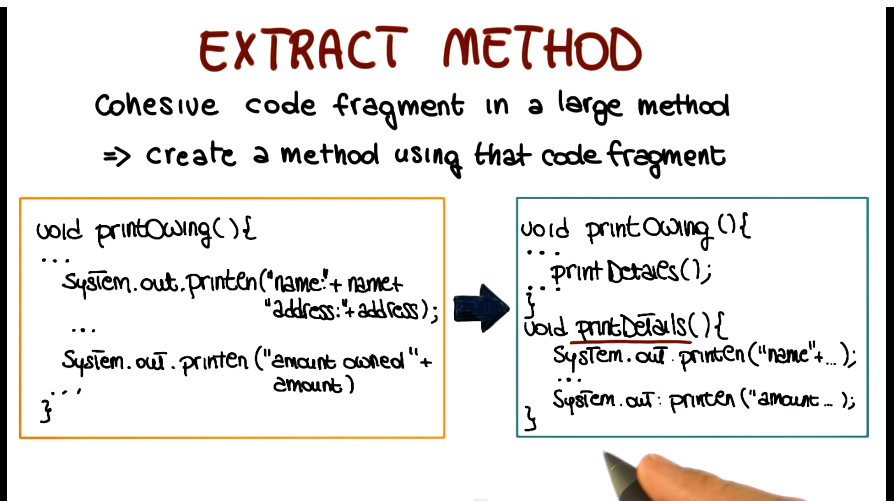 EXTRACT METHOD
Cohesive code fragment in a large method
=> create a method using that code fragment
void printOwing(){
...
System.out.println("name:"+ name+
"address:"+address);
...
System.out.println ("amount owned"+
amount)
...
}
void printOwing (){
...
printDetails();
...
}
void printDetails(){
System.out.println("name"+...);
...
System.out: println ("amount...);
}